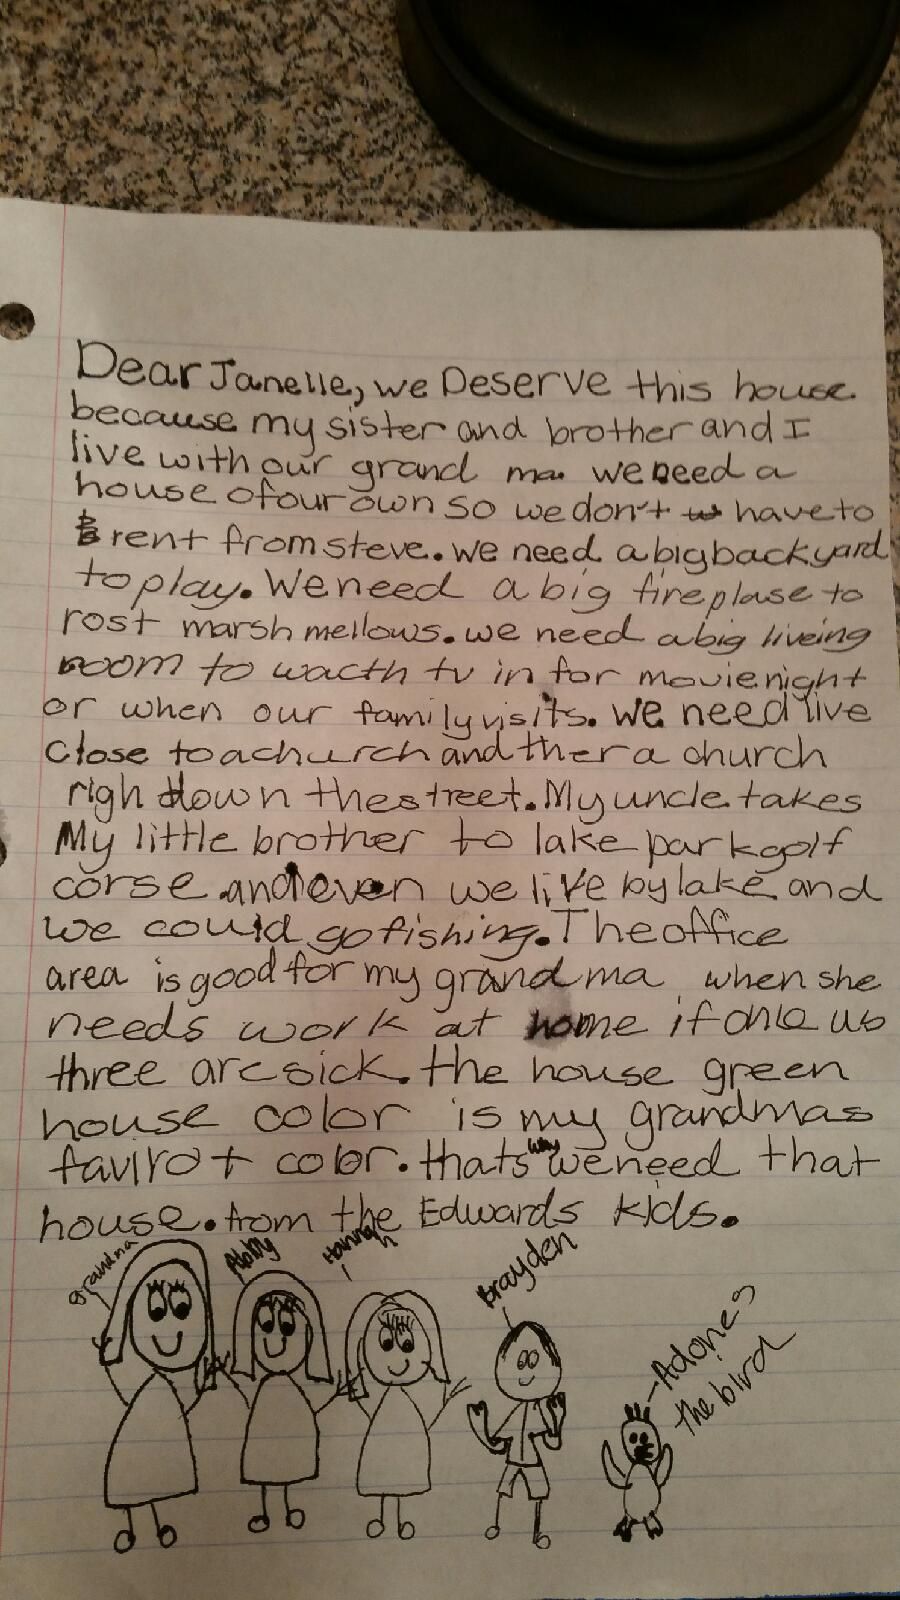 Dear Janelle, we Deserve this house.
because my sister and brother and I
live with our grand ma we need a
house of our own so we don't have to
rent from steve. we need a big back yard
to play. We need a big fireplase to
rost marsh mellows. we need a big liveing
room to wacth tv in for movie night
or when our family visits. We need live
close to a church and ther a church
righ down the street. My uncle takes
My little brother to lake park golf
corse and even we live by lake and
we could go fishing. The office
area is good for my grand ma when she
needs work at home if us
three are sick. the house green
house color is my grandmas
favirot color. thats why we need that
house. from the Edwards kids.
grandma Abby Hannah Brayden
Adones
the bird